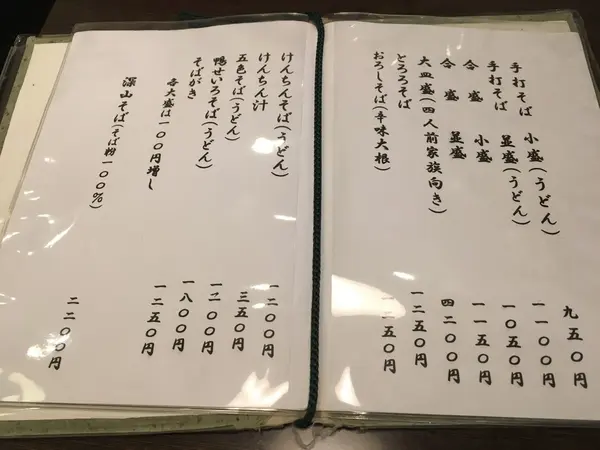 手打そば 小盛(うどん) 九五〇円
手打そば 並盛(うどん) 一一〇〇円
合盛 小盛 一〇五〇円
合盛 並盛 一一五〇円
大皿盛(四人前家族向き) 四二〇〇円
とろろそば 一二五〇円
おろしそば(辛味大根) 一二五〇円
けんちんそば(うどん) 一二〇〇円
けんちん汁 三五〇円
五色そば(うどん) 一二〇〇円
鴨せいろそば(うどん) 一八〇〇円
そばがき 一二五〇円
各大盛は一〇〇円増し
深山そば(そば粉一〇〇%) 二二〇〇円